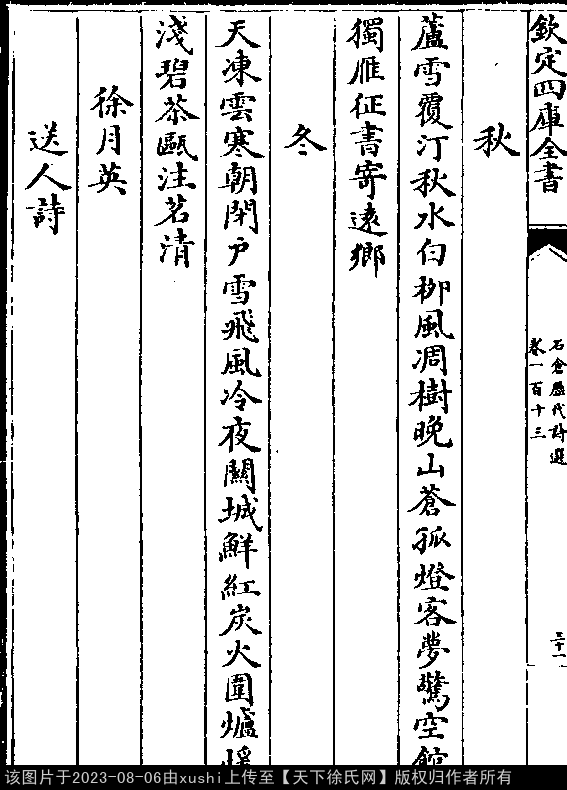 欽定四庫全書
石倉歷代詩選
卷一百十三
三十一
秋
蘆雪覆汀秋水白柳風凋樹晚山蒼孤燈客夢驚空館
獨雁征書寄遠鄉
冬
天凍雲寒朝閉戶雪飛風冷夜關城鮮紅炭火圍爐煖
淺碧茶甌注茗清
徐月英
送人詩
该图片于2023-08-06由xushi上传至【天下徐氏网】版权归作者所有